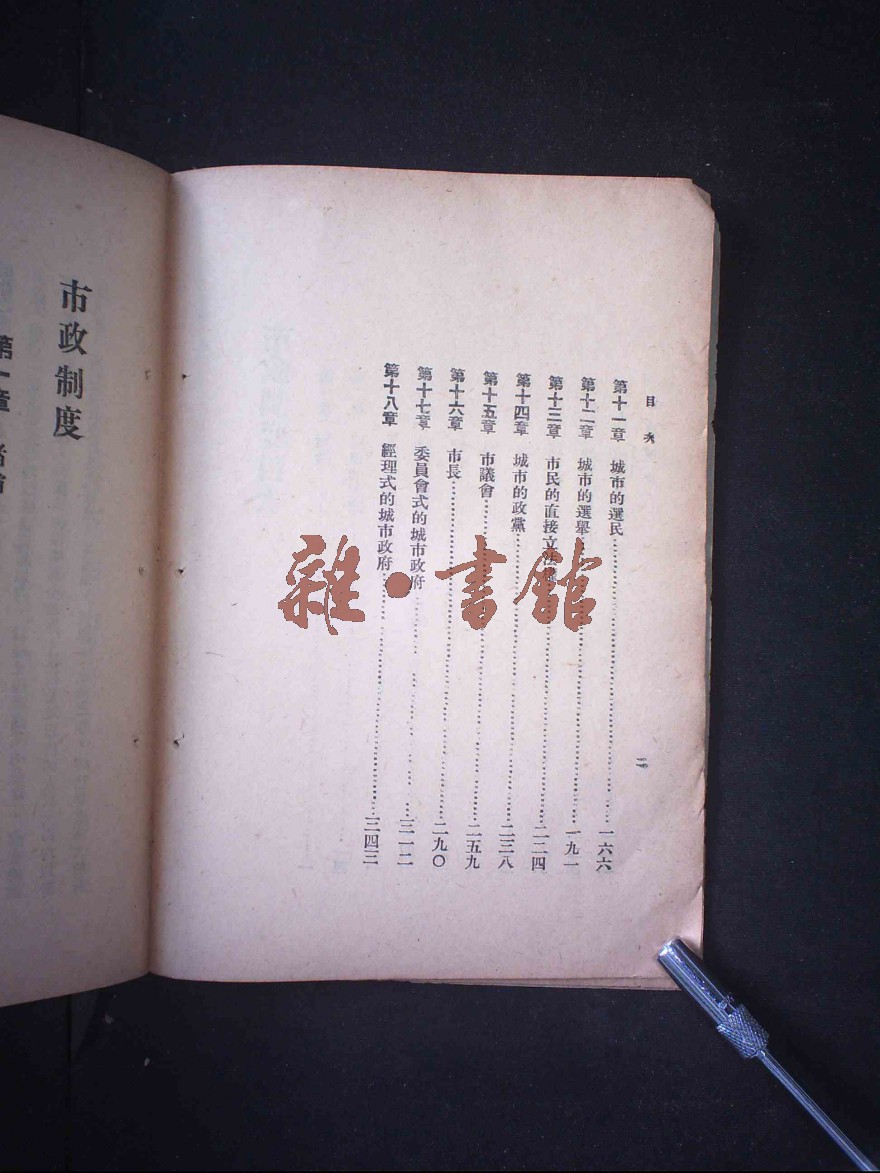 目次
二
第十一章 城市的選民……一六六
第十二章 城市的選舉……一九一
第十三章 市民的直接立法……二二四
第十四章 城市的政黨……二三八
第十五章 市議會……二五九
第十六章 市長……二九〇
第十七章 委員會式的城市政府……三一二
第十八章 經理式的城市政府……三四三
市政制度
第一章
雜·書館